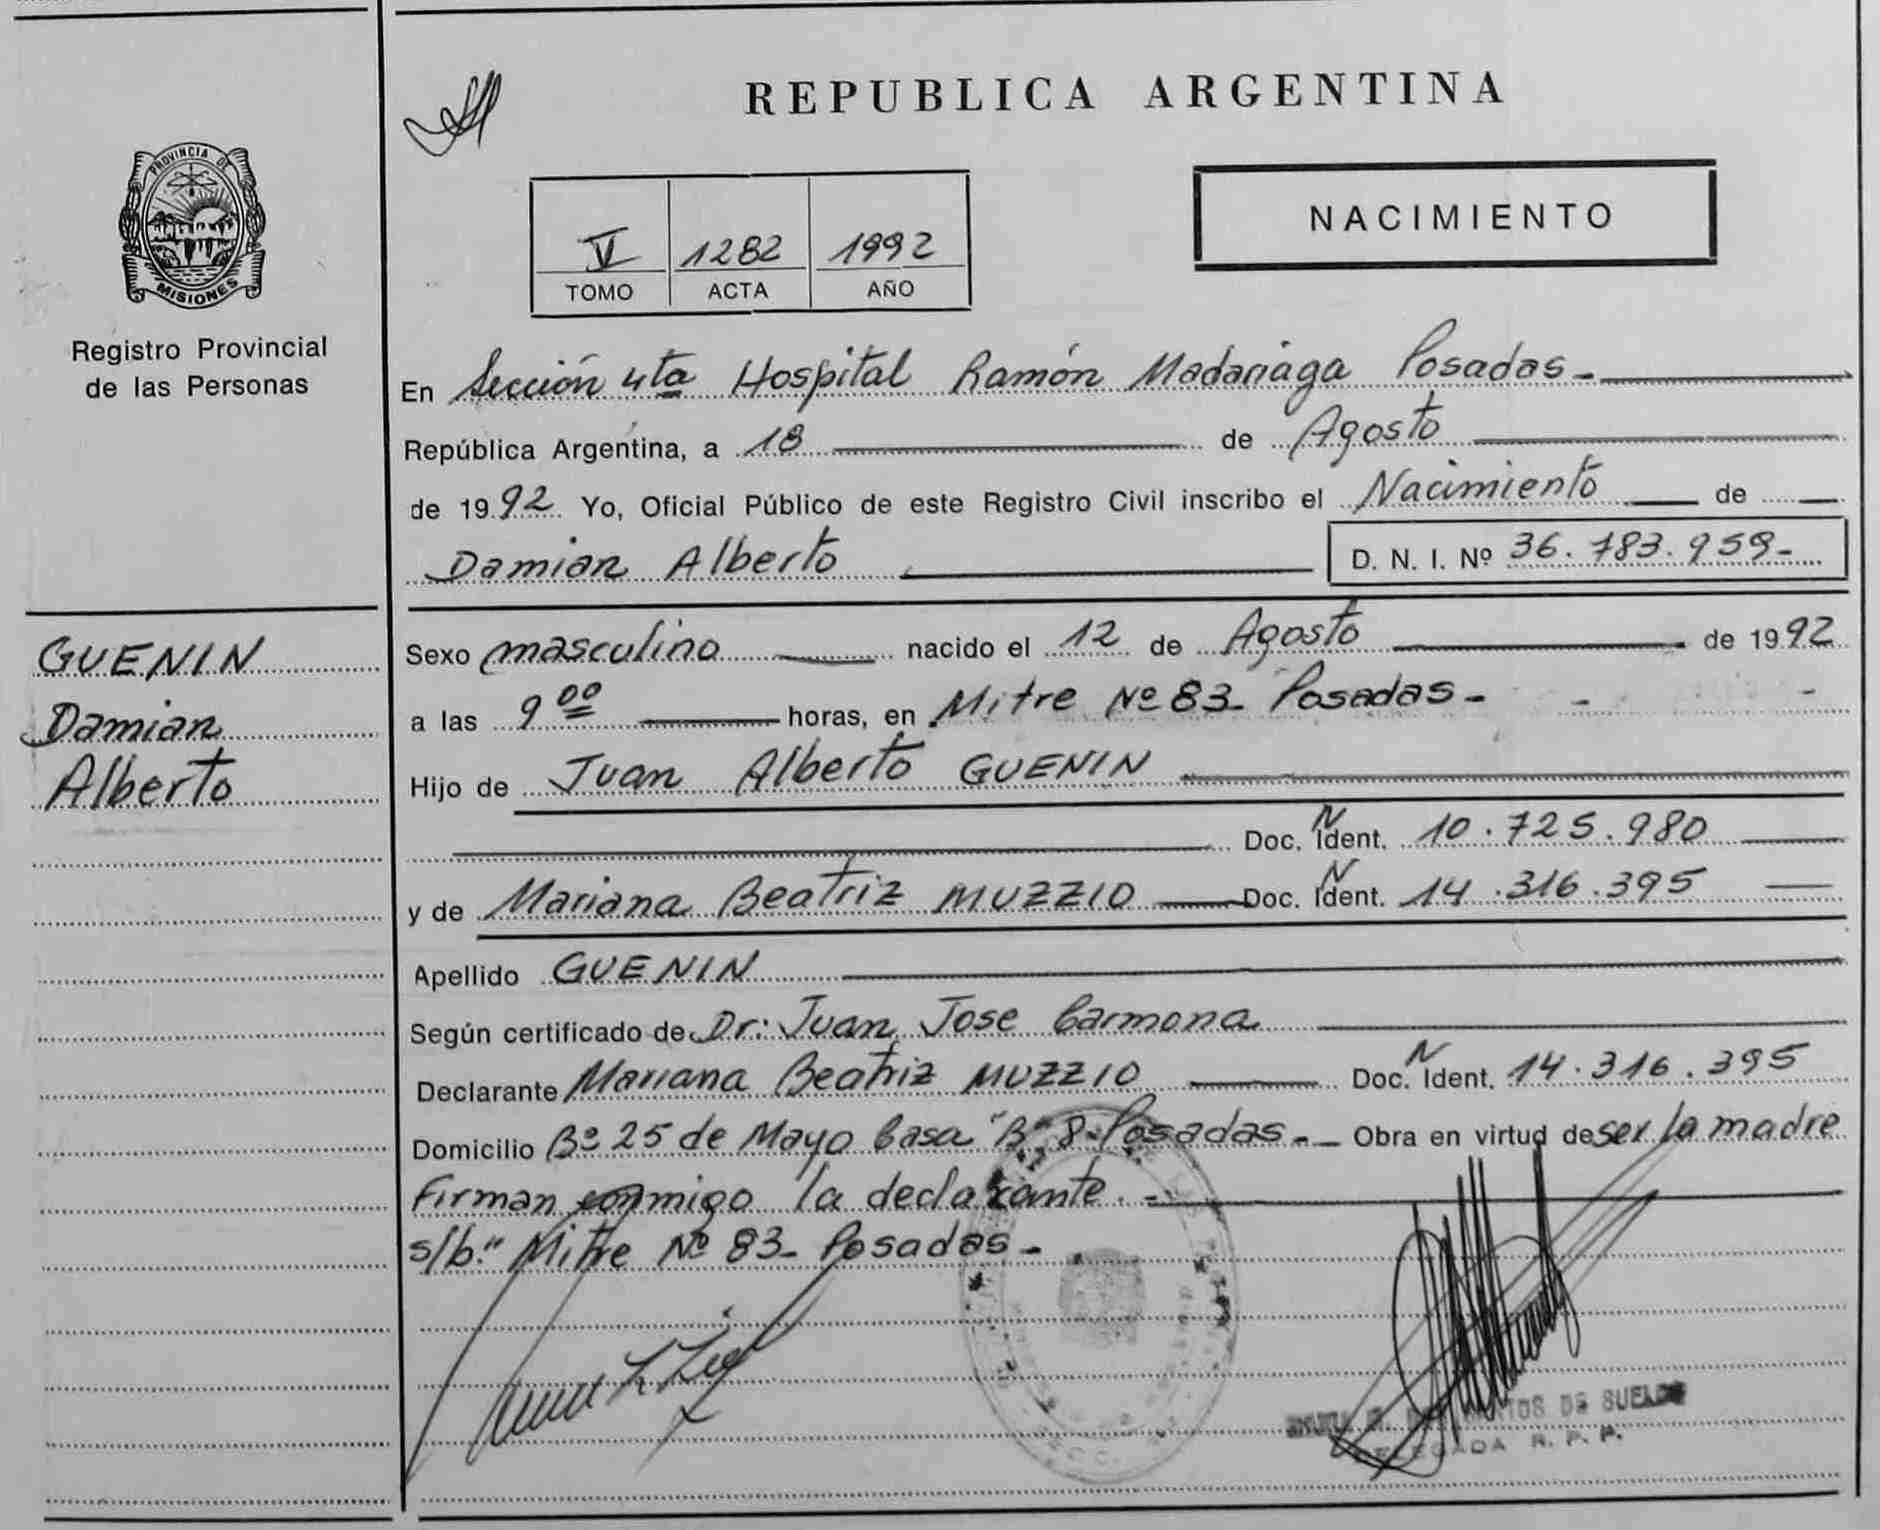 PROVINCIA DE
MISIONES
Registro Provincial
de las Personas
GUENIN
Damian
Alberto
REPUBLICA ARGENTINA
V 1282 1992
TOMO ACTA AÑO
NACIMIENTO
En Sección 4ta Hospital Ramón Madariaga Posadas-
República Argentina, a 18 de Agosto
de 1992 Yo, Oficial Público de este Registro Civil inscribo el Nacimiento de
Damian Alberto D. N. I. Nº 36.783.959-
Sexo masculino nacido el 12 de Agosto de 1992
a las 9 00 horas, en Mitre Nº 83- Posadas-
Hijo de Juan Alberto GUENIN
Doc. N Ident. 10.725.980
y de Mariana Beatriz MUZZIO Doc. N Ident. 14.316.395
Apellido GUENIN
Según certificado de Dr: Juan Jose Carmona
Declarante Mariana Beatriz MUZZIO Doc. N Ident. 14.316.395
Domicilio Bº 25 de Mayo Casa "B" 8-Posadas.- Obra en virtud de ser la madre
Firman conmigo la declarante.-
s/b:" Mitre Nº 83- Posadas-
DE SUELDO
DELEGADA R. P. P.